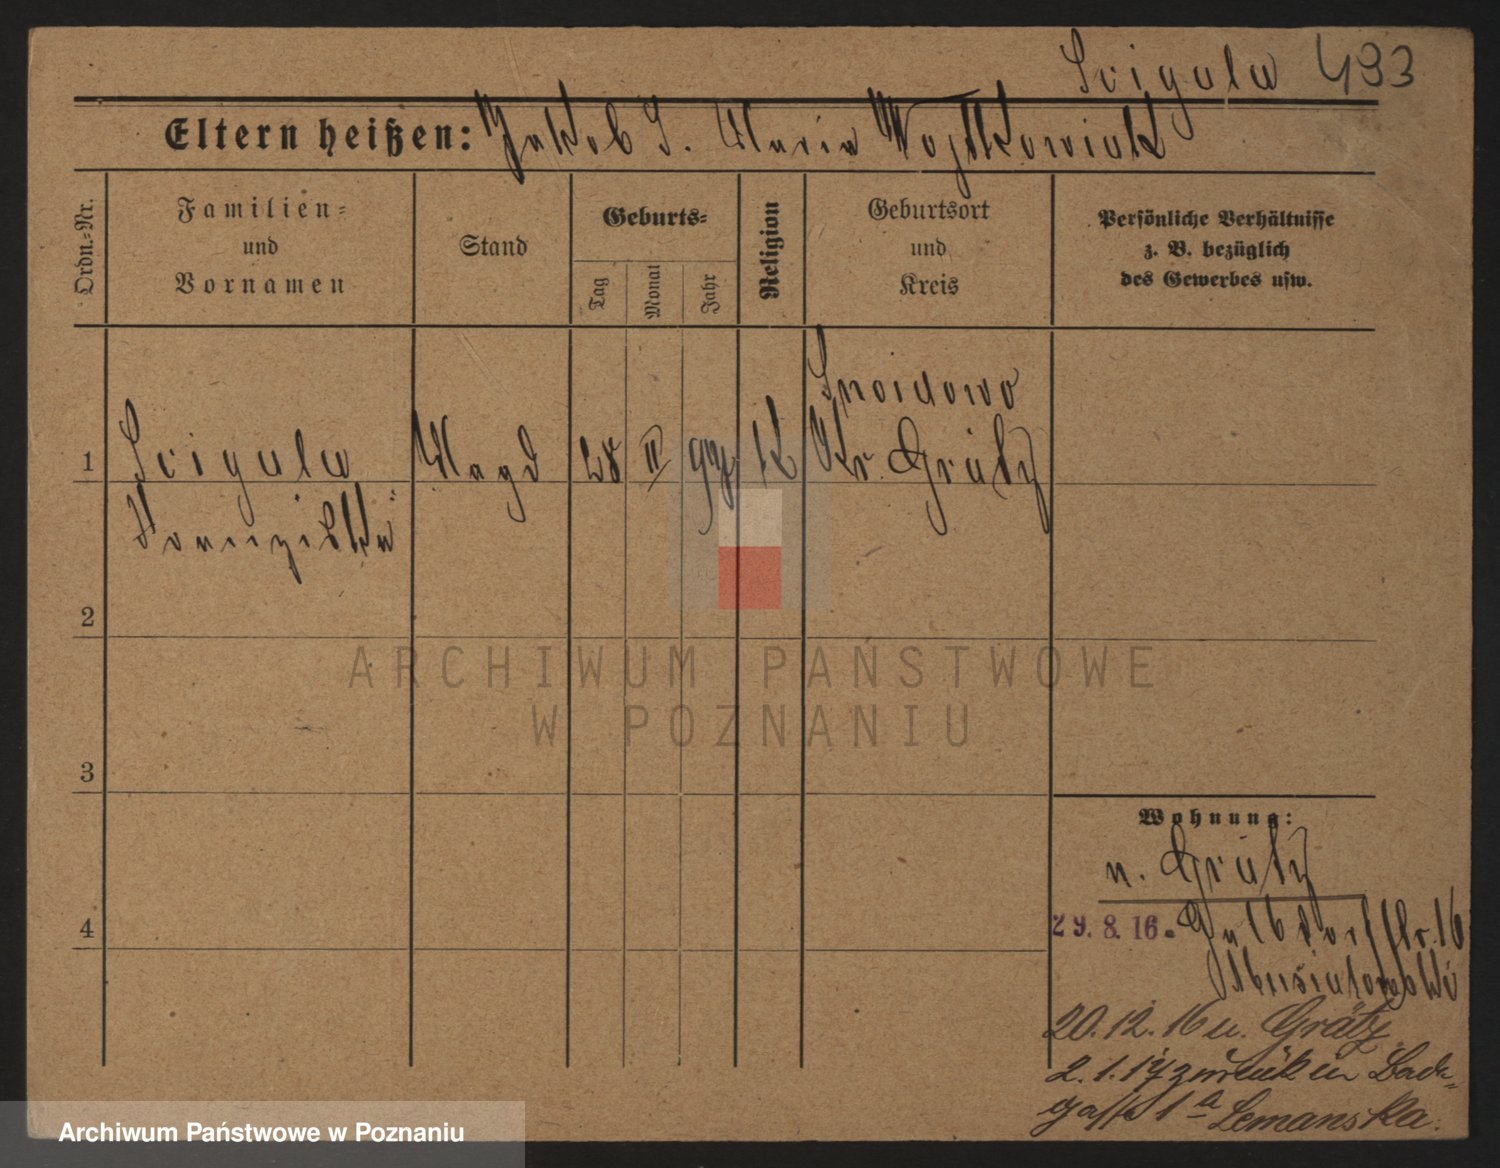 Scigala 493
Eltern heißen: Jakob S. Maria Wojtkowiak
Ordn.-Nr.
Familien-
und
Vornamen
Stand
Geburts-
Tag
Monat
Jahr
Religion
Geburtsort
und
Kreis
Persönliche Verhältnisse
z. B. bezüglich
des Gewerbes usw.
Snoidowo
1 Scigala Magd 28 II 97 K Kr. Grätz
Franziska
2
3
4
Wohnung:
n. Grätz
29.8.16. 16
20.12.16 n. Grätz
2.1.17 zurück Back-
gasse 1a Lemanska.
ARCHIWUM PAŃSTWOWE
W POZNANIU
Archiwum Państwowe w Poznaniu